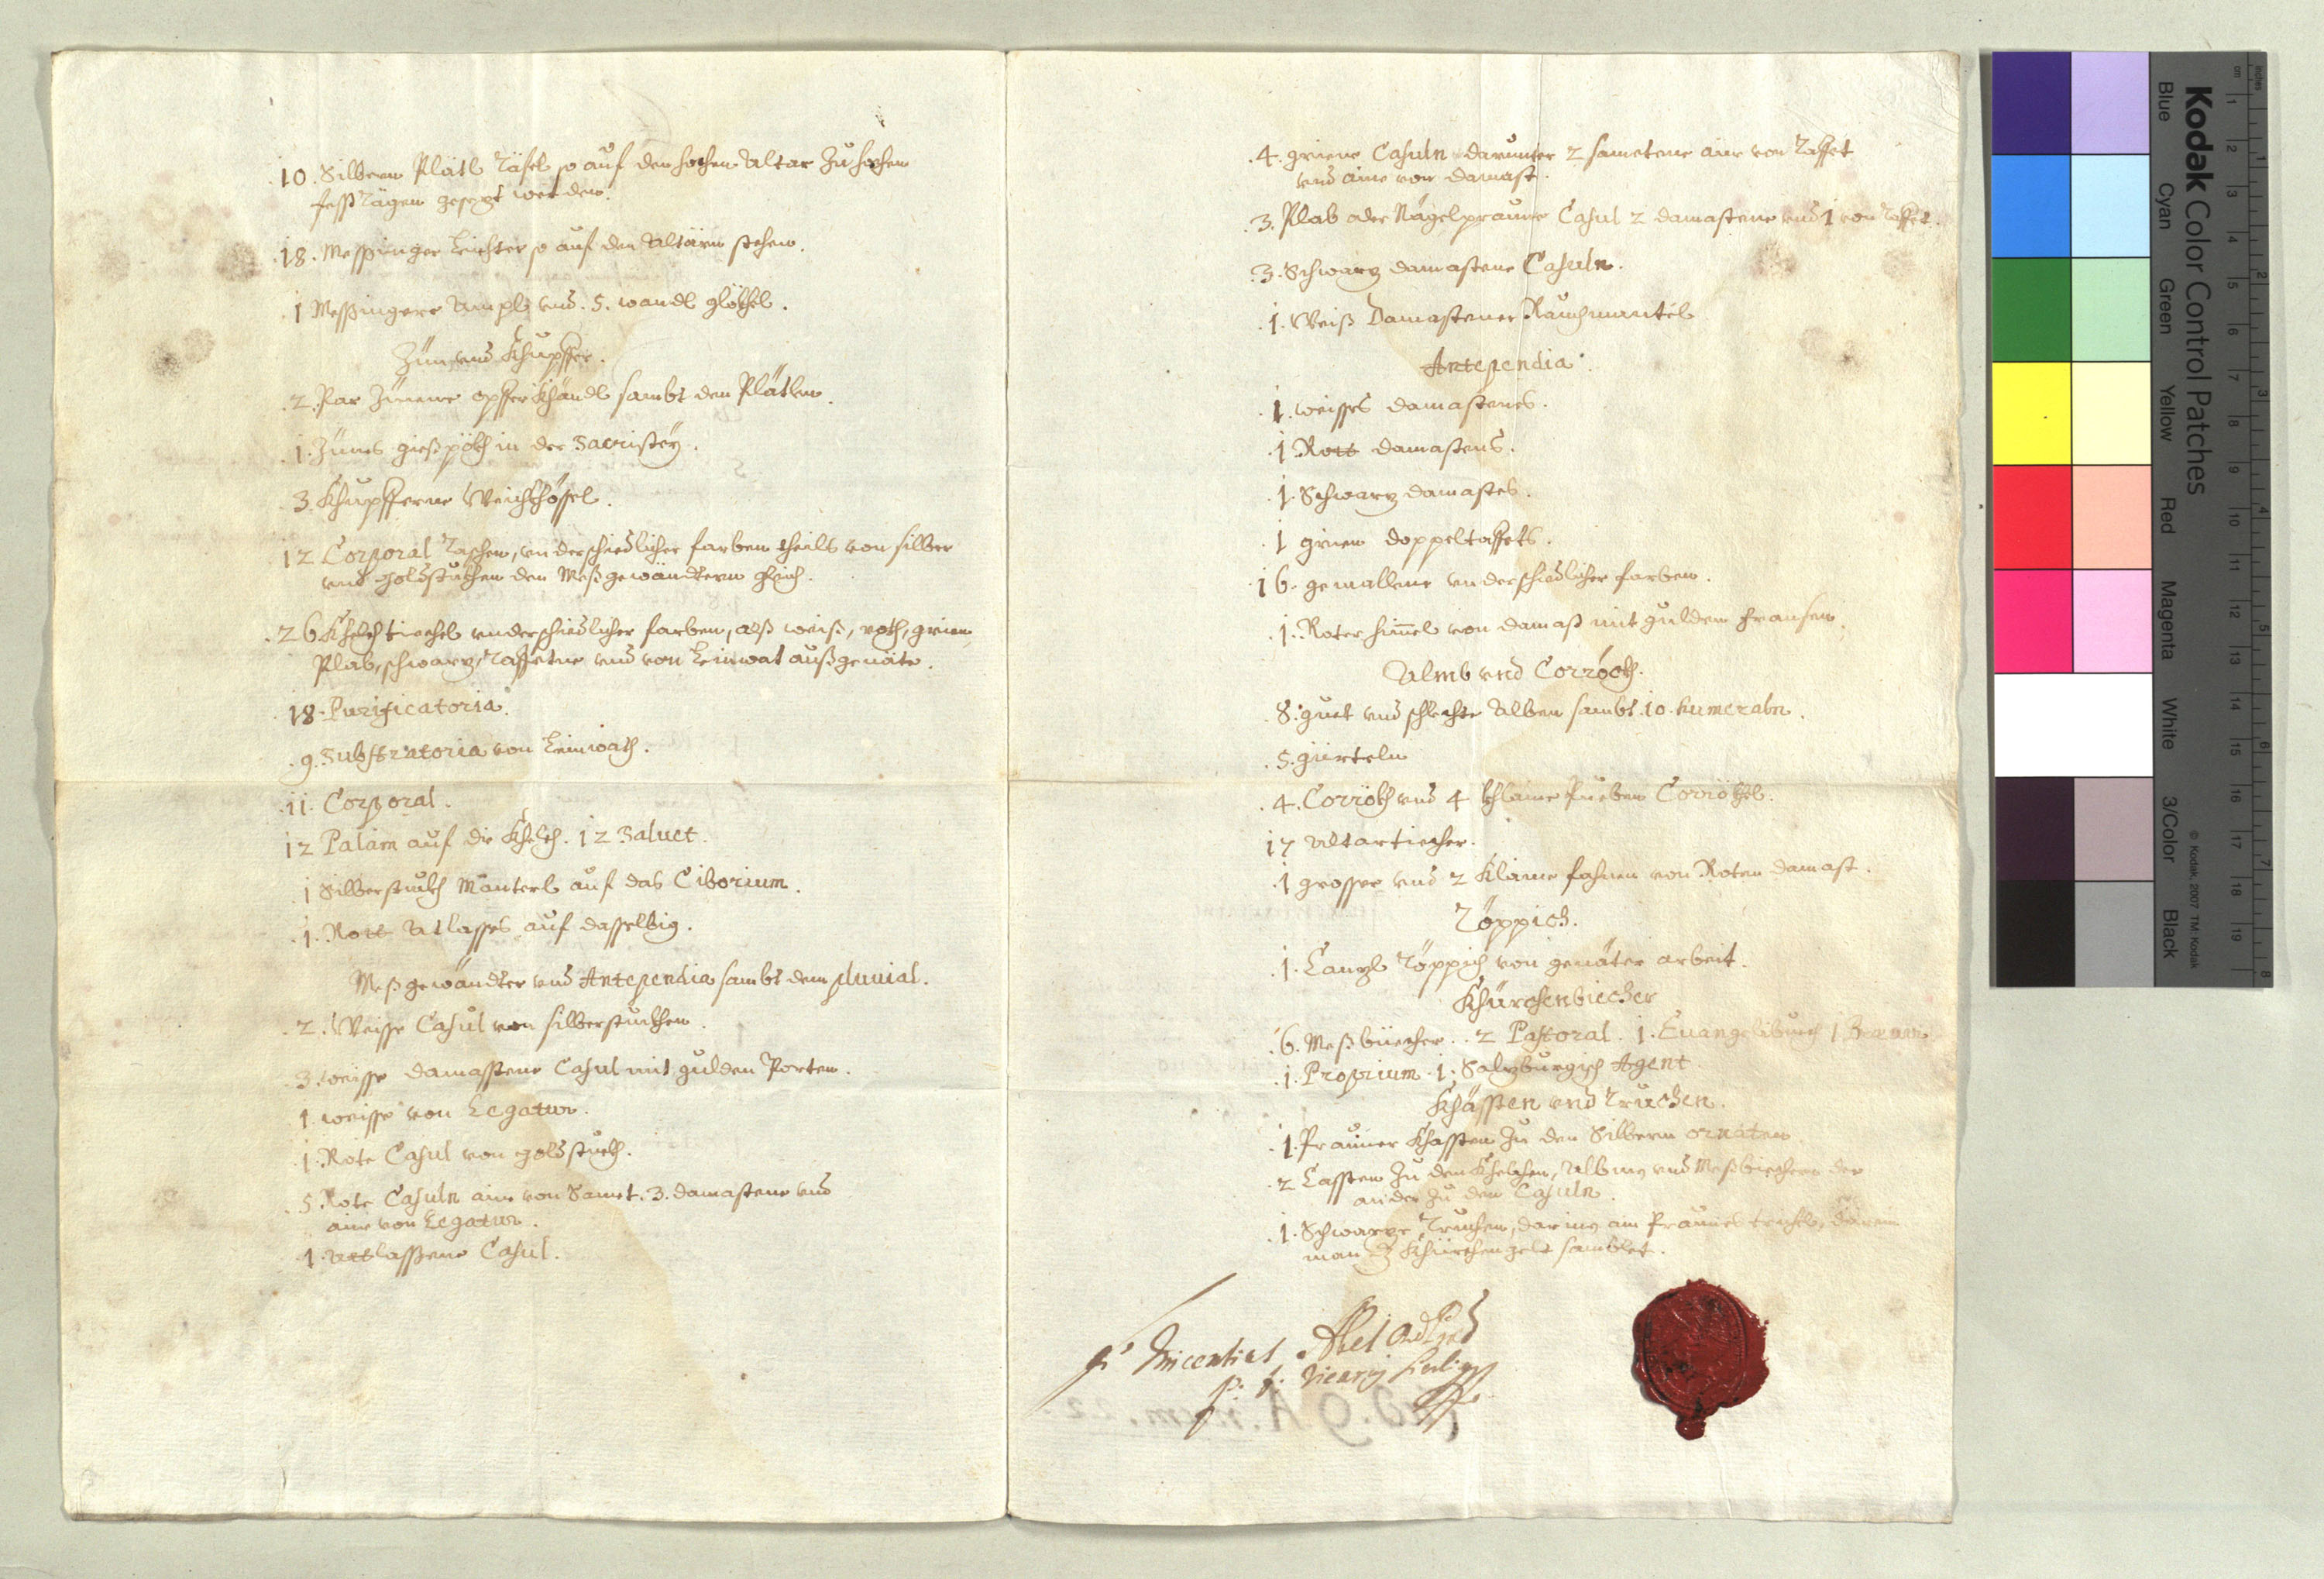 10. Silberne Plätl Täfel so auf den hochen Altar zu hochen
fessttägen gesezt werden.
18. Messinger Leichter so auf den Altärn stehen.
1 Messingere Ampl vnd. 5. wandl glökhel.
Zün vnd Khupffer.
2. Par Zünene opffer Khändl sambt den Plätlen.
1. Zünes gießpökh in der Sacristey.
3. Khupfferne Weichkhössel.
12 Corporal Taschen, vnderschiedlicher farben theils von silber
vnd goldstukhen den Meßgewändtern gleich.
26 Khelch tiechel vnderschiedlicher farben, alß weiß, roth, grien,
Plab, schwarz, Taffetne vnd von Leinwat außgenäte.
18. Purificatoria.
9. Substratoria von Leinwath.
11. Corporal.
12 Palam auf die Khelch. 12 Saluet.
1 Silberstukh Mänterl auf das Ciborium.
1. Rott Atlasses auf dasselbig.
Meßgewändter vnd Antependia sambt dem pluuial.
2. Weisse Casul von silberstukhen.
3. weisse damastene Casul mit gulden Porten.
1 weisse von Legatur.
1. Rote Casul von goldstukh.
5 Rote Casuln aine von Samet. 3. damastene vnd
aine von Legatur.
1. Attlassene Casul.
4. griene Casuln darunter 2 sametene aine von Taffet
vnd aine von damast.
3. Plab oder Nägelpraune Casul 2 damastene vnd 1 von Taffet.
3. Schwarz damastene Casuln.
1. Weiß Damastener Rauchmantel
Antependia.
1. weisses damastenes.
1 Rott damastens.
1. Schwarz damastes.
1 grien doppeltaffets.
16. gemallene vnderschiedlicher farben.
1. Roter himel von damast mit gulden fransen.
Almb vnd Corröckh.
8. guet vnd schlechte Alben sambt 10. humeraln.
5. gürteln
4. Corrökh vnd 4 khlaine Pueben Corrökhel.
17 Altartiecher.
1 grosser vnd 2 Klaine fahnen von Roten damast.
Töppich.
1. Canzl Töppich von genäter arbeit.
Khürchenbiecher
6. Meßbüecher. 2 Pastoral. 1. Euangelibuech 1
1. Proprium. 1. Salzburgisch Agent
Khässten vnd Truchen.
1. Prauner Khassten zu den Silbern ornaten
2 Cassten zu den Khelchen, Alben vnd Meßbiechern der
ander zu den Casuln.
1. Schwarze Truchen, darin ain Praunes trichl, darein
man Khürchengelt samblet.
Abel